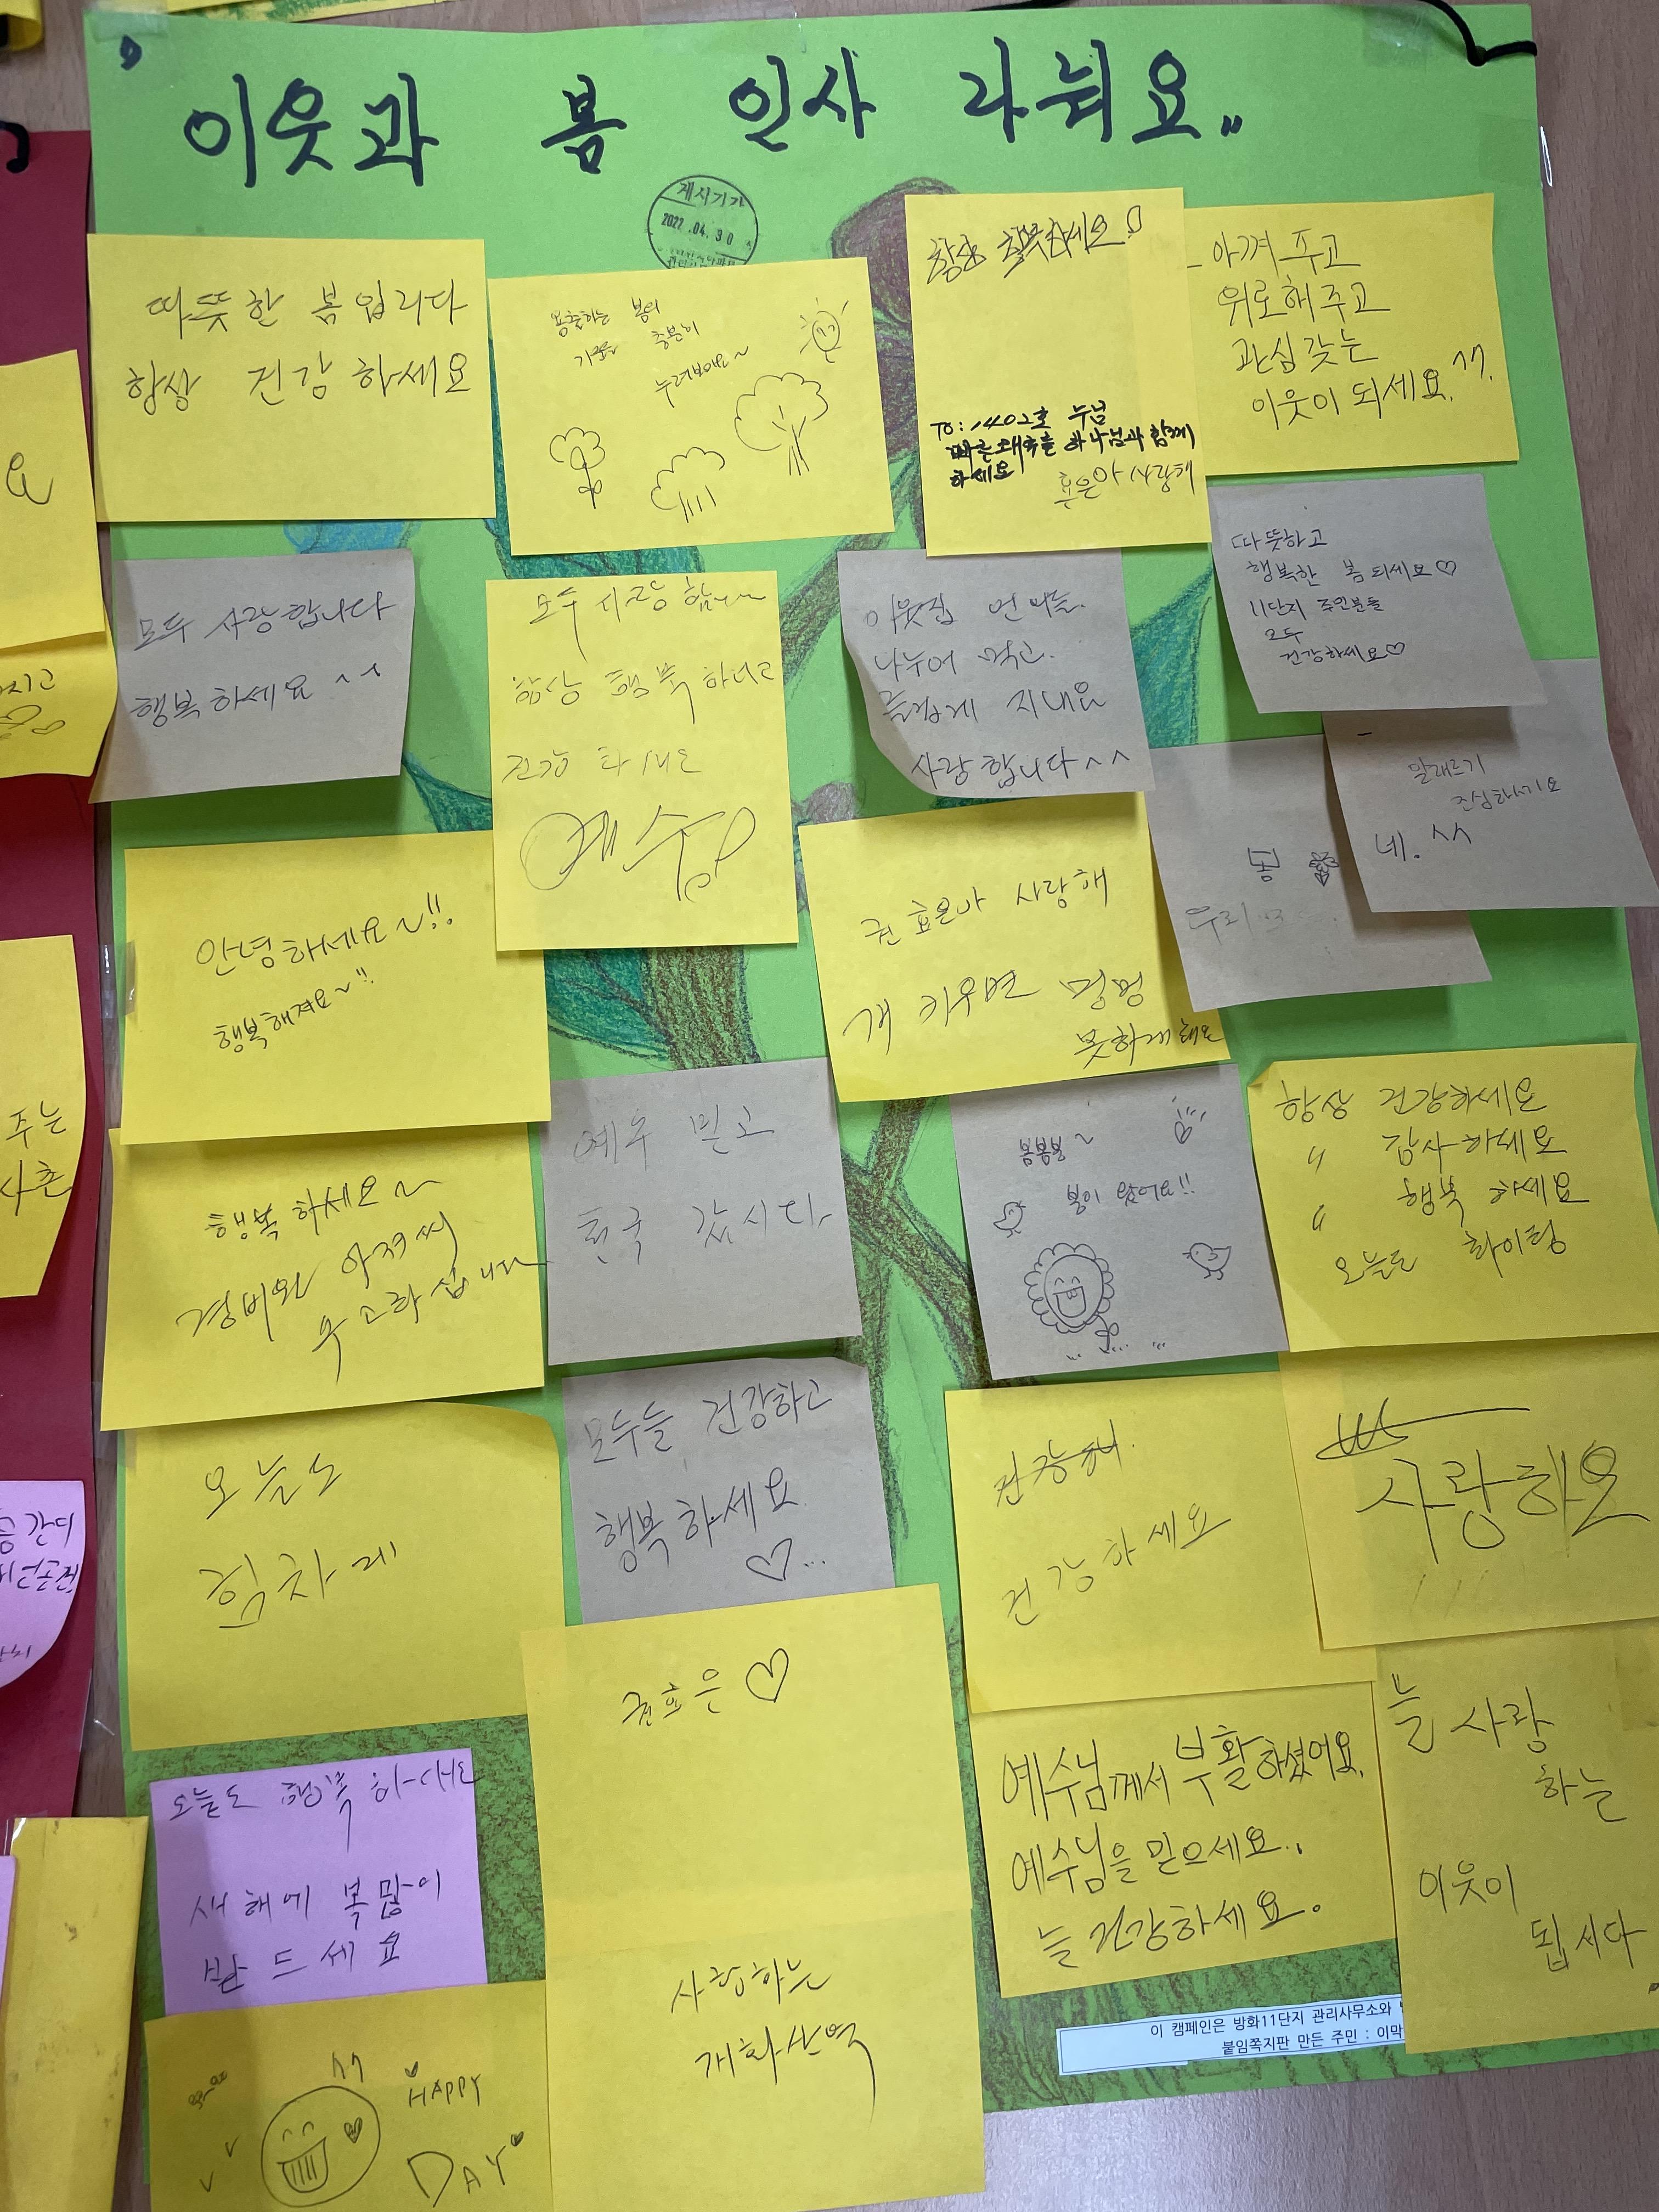 이웃과 봄 인사 나눠요..
게시기간
2022.04.30
따뜻한 봄입니다
항상 건강하세요
봄의
기운을 충분히
누려보아요~
항상 행복하세요
To: 1402호 누님
빠른 쾌유를 하나님과 함께
하세요
효은아 사랑해
아껴주고
위로해주고
관심갖는
이웃이 되세요. ^^.
모두 사랑합니다
행복하세요 ^^
모두 사랑합니다
항상 행복하시고
건강하세요
이웃집 언니들.
나누어 먹고.
즐겁게 지내요
사랑합니다^^
따뜻하고
행복한 봄 되세요♡
11단지 주민분들
모두
건강하세요♡
네. ^^
봄
우리
안녕하세요~!!.
행복해져요~!!
권효은아 사랑해
개 키우면 멍멍
못하게 해요
행복하세요~
경비원 아저씨
수고하십니다
예수 믿고
천국 갑시다.
봄봄봄~
봄이 왔어요!!
항상 건강하세요
〃 감사하세요
〃 행복하세요
오늘도 화이팅
오늘도
힘차게
모두들 건강하고
행복하세요
♡...
건강하세요
사랑해요
권효은 ♡
오늘도 행복하세요
새해에 복많이
받드세요
예수님께서 부활하셨어요.
예수님을 믿으세요..
늘 건강하세요.
늘 사랑
하는
이웃이
됩시다
사랑하는
개화산역
^^
HAPPY
DAY
이 캠페인은 방화11단지 관리사무소와
붙임쪽지판 만든 주민 : 이막
요
주는
사촌